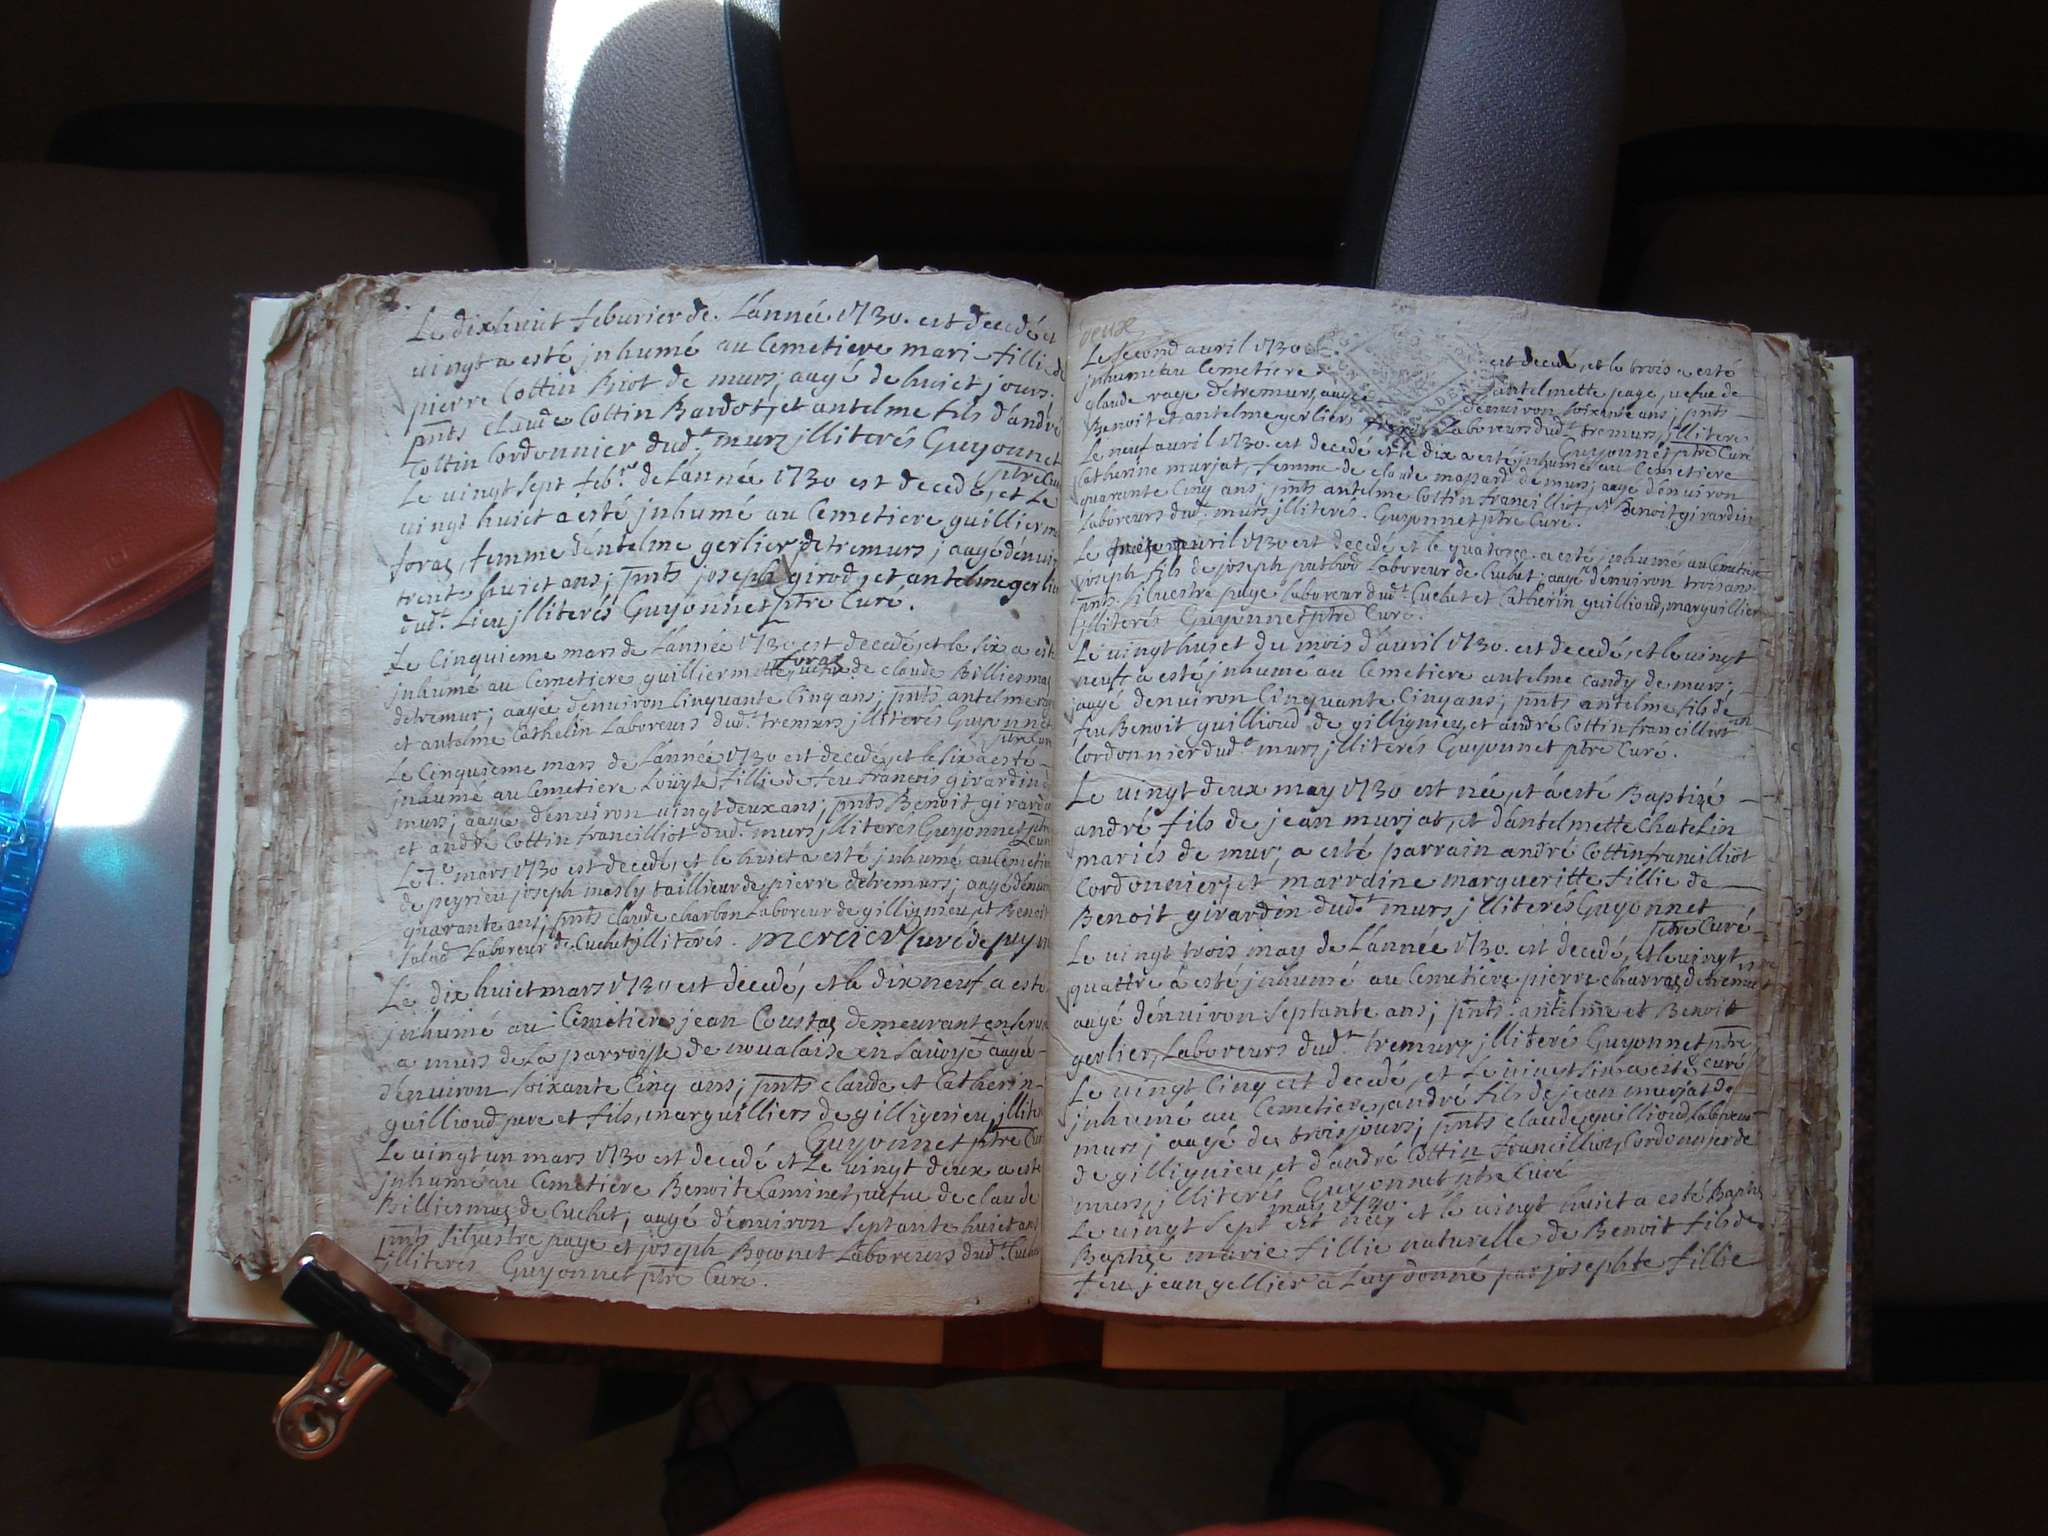 Le dixhuict feburier de L'année 1730. est decedé et
vingt a esté jnhumé au Cemetiere mari fillie de
pierre Cottin Biot de murs; aagé de huict jours;
pnts claude Cottin Bardot, et antelme fils d'andré
Cottin Cordonnier dudt murs jlliterés Guyonnet
ptre Curé
Le vingt sept febr. de L'année 1730 est decedé, et Le
vingt huict a esté jnhumé au Cemetiere guillierme
foraz, femme d'entelme gerlier de tremurs; aagé d'envir
trente huict ans; pnts joseph girod, et antelme gerlier
dudt Lieu jlliterés Guyonnet ptre Curé.
Le Cinquieme mars de L'année 1730 est decedé, et le six a esté
foraz
jnhumé au Cemetiere guilliermette vefve de claude Billiermaz
de tremur; aagée d'environ Cinquante Cinq ans; pnts antelme
et antelme Cathelin Laboreurs dudt tremurs jlliterés Guyonnet
ptre Curé
Le Cinquieme mars de L'année 1730 est decedé, et le six a esté
jnhumé au Cemetiere Loüyse fillie de feu françois girardin de
murs; aagé d'environ vingt deux ans; pnts Benoit girardin
et andré Cottin francilliot dudt murs jlliterés Guyonnet ptre
Curé
Le 7e mars 1730 est decedé, et le huict a esté jnhumé au Cemetiere
de peyrieu joseph masly taillieur de pierre de tremurs; aagé d'environ
quarante ans; pnts claude charbon Laboreur de gillignieu, et Benoit
Laboreur de Cuchet jlliterés. mercier Curé de peyrieu
Le dix huict mars 1730 est decedé, et le dix neuf a esté
jnhumé au Cemetiere jean Coustaz demeurant en service
a murs de La parroisse de novalaise en Savoye aagé
d'environ soixante Cinq ans; pnts claude et Catherin
guillioud pere et fils, marguilliers de gilligenieu, jlliterés
Guyonnet ptre Curé
Le vingt un mars 1730 est decedé et Le vingt deux a esté
jnhumé au Cemetiere Benoite Caminet, vefue de claude
Billiermaz de Cuchet; aagé d'environ septante huict ans
pnts silvestre page et joseph Laboreurs dudt Cuchet
jlliterés Guyonnet ptre Curé.
Le second avril 1730 est decedé, et le trois a esté
jnhumé au Cemetiere antelmette page, vefue de
glaude de tremurs, aagée d'environ soixante ans; pnts
Benoit et antelme gerlier, freres Laboreurs dudt tremurs, jlliteres
Guyonnet ptre Curé
Le neuf avril 1730. est decedé et le dix a esté jnhumé au Cemetiere
Catherine murjat, femme de claude massard de murs; aagé d'environ
quarante Cinq ans; pnts antelme Cottin francilliot, et Benoit girardin
Laboreurs dudt murs jlliteres. Guyonnet ptre Curé.
Le avril 1730 est decedé et le quatorze a esté jnhumé au Cemetiere
joseph fils de joseph Laboreur de Cuchet; aagé d'environ trois ans
pnts silvestre page Laboreur dudt Cuchet et Catherin guillioud, marguillier
jlliterés Guyonnet ptre Curé.
Le vingt huict du mois d'avril 1730. est decedé, et le vingt
neuf a esté jnhumé au Cemetiere antelme Candy de murs;
aagé d'environ Cinquante Cinq ans; pnts antelme fils de
feu Benoit guillioud de gillignieu, et andré Cottin francilliot
Cordonnier dudt murs jlliterés Guyonnet ptre Curé.
Le vingt deux may 1730 est née, et a esté Baptizé
andré fils de jean murjat, et d'antelmette Chatelin
mariés de mur; a esté parrain andré Cottin francilliot
Cordonnier, et marraine margueritte fillie de
Benoit girardin dudt murs jlliterés Guyonnet
ptre Curé
Le vingt trois may de L'année 1730. est decedé, et le vingt
quattre a esté jnhumé au Cemetiere pierre charraz de tremur
aagé d'environ septante ans; pnts antelme et Benoit
gerlier, Laboreurs dudt tremurs jlliterés Guyonnet ptre
Curé
Le vingt Cinq est decedé, et Le vingt six a esté
jnhumé au Cemetiere, andré fils de jean murjat de
murs; aagé de trois jours; pnts claude guillioud, Laboreur
de gillignieu, et d'andré Cottin francilliot, Cordonnier de
murs, jlliterés Guyonnet ptre Curé
may 1730.
Le vingt sept est née, et le vingt huict a esté Baptis
Baptizé marie fillie naturelle de Benoit fils de
feu jean gellier a Luy donné par josephte fillie